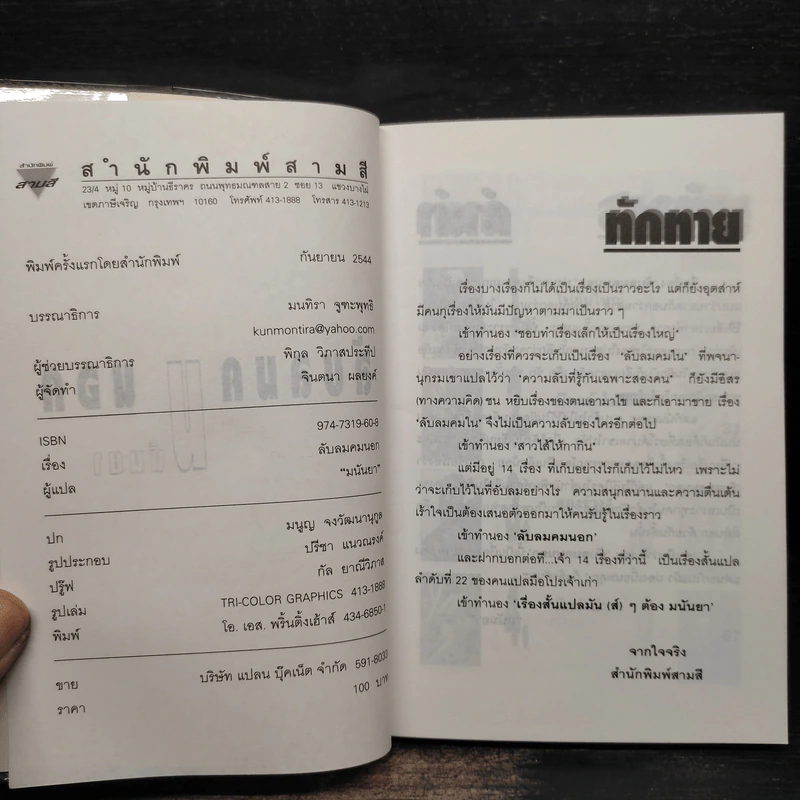 สำนักพิมพ์
สามสี
สำนักพิมพ์สามสี
23/4 หมู่ 10 หมู่บ้านธีราคร ถนนพุทธมณฑลสาย 2 ซอย 13 แขวงบางไผ่
เขตภาษีเจริญ กรุงเทพฯ 10160 โทรศัพท์ 413-1888 โทรสาร 413-1213
พิมพ์ครั้งแรกโดยสำนักพิมพ์ กันยายน 2544
บรรณาธิการ มนทิรา จูฑะพุทธิ
kunmontira@yahoo.com
ผู้ช่วยบรรณาธิการ พิกุล วิภาสประทีป
ผู้จัดทำ จินตนา ผลยงค์
ISBN 974-7319-60-8
เรื่อง ลับลมคมนอก
ผู้แปล "มนันยา"
ปก มนูญ จงวัฒนานุกูล
รูปประกอบ ปรีชา แนวณรงค์
ปรู๊ฟ กัล ยาณีวิภาส
รูปเล่ม TRI-COLOR GRAPHICS 413-1888
พิมพ์ โอ. เอส. พริ้นติ้งเฮ้าส์ 434-6850-1
ขาย บริษัท แปลน บุ๊คเน็ต จำกัด 591-8033
ราคา 100 บาท
ทักทาย
เรื่องบางเรื่องก็ไม่ได้เป็นเรื่องเป็นราวอะไร แต่ก็ยังอุตส่าห์
มีคนกุเรื่องให้มันมีปัญหาตามมาเป็นราว ๆ
เข้าทำนอง 'ชอบทำเรื่องเล็กให้เป็นเรื่องใหญ่'
อย่างเรื่องที่ควรจะเก็บเป็นเรื่อง 'ลับลมคมใน' ที่พจนา-
นุกรมเขาแปลไว้ว่า 'ความลับที่รู้กันเฉพาะสองคน' ก็ยังมีอิสร
(ทางความคิด) ชน หยิบเรื่องของตนเอามาไข และก็เอามาขาย เรื่อง
'ลับลมคมใน' จึงไม่เป็นความลับของใครอีกต่อไป
เข้าทำนอง 'สาวไส้ให้กากิน'
แต่มีอยู่ 14 เรื่อง ที่เก็บอย่างไรก็เก็บไว้ไม่ไหว เพราะไม่
ว่าจะเก็บไว้ในที่อับลมอย่างไร ความสนุกสนานและความตื่นเต้น
เร้าใจเป็นต้องเสนอตัวออกมาให้คนรับรู้ในเรื่องราว
เข้าทำนอง 'ลับลมคมนอก'
และฝากบอกต่อที...เจ้า 14 เรื่องที่ว่านี้ เป็นเรื่องสั้นแปล
ลำดับที่ 22 ของคนแปลมือโปรเจ้าเก่า
เข้าทำนอง 'เรื่องสั้นแปลมัน (ส์) ๆ ต้อง มนันยา'
จากใจจริง
สำนักพิมพ์สามสี